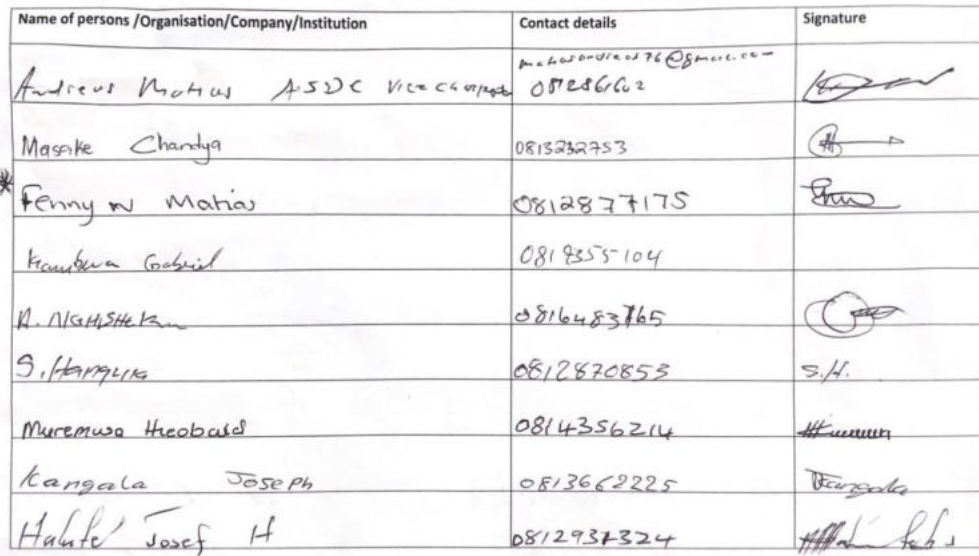 Name of persons /Organisation/Company/Institution Contact details Signature
matiasandreas76@gmail.com
Andreas Matias ASDC Vice 0812861602
Masake Chandya 0813232753
* Fenny N Matias 0812877175
Gabriel 0819355104
A. NGHISHEKWA 0816483765
S. Hangula 0812870853 S.H.
Muremwa Hieobald 0814356214
Kangala Joseph 0813662225 Kangala
Josef H 0812931324